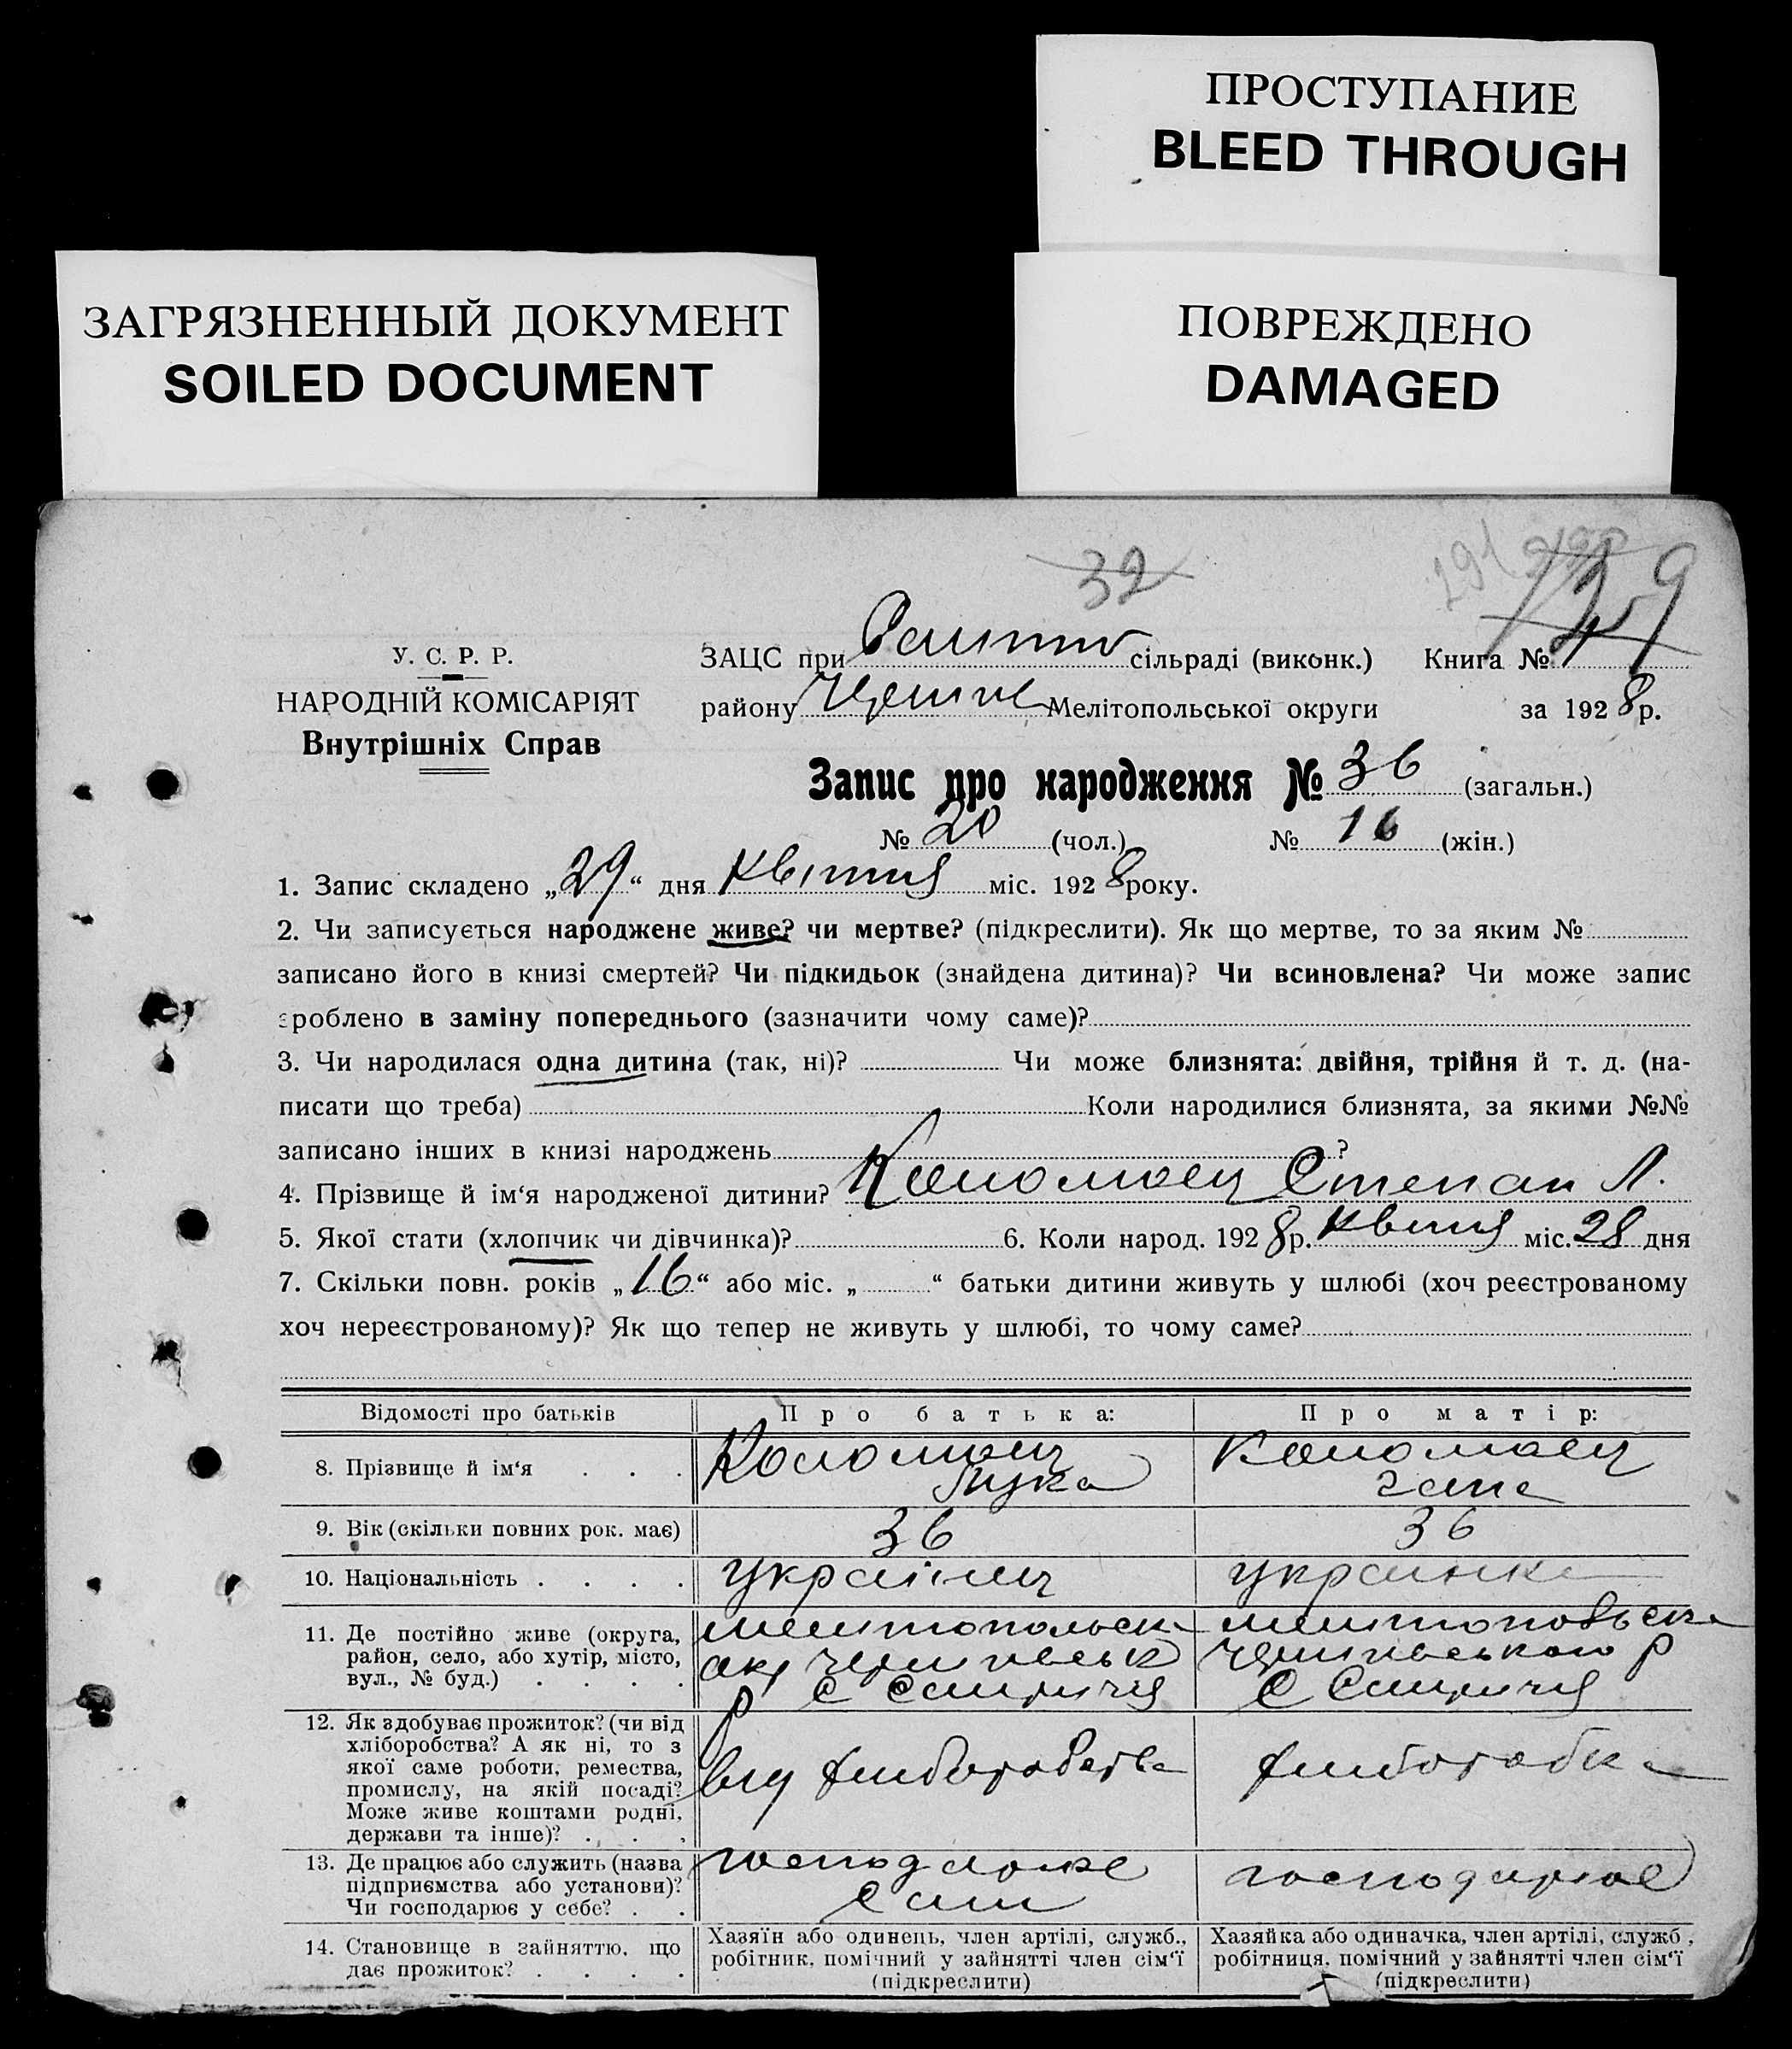 ПРОСТУПАНИЕ
BLEED THROUGH
ЗАГРЯЗНЕННЫЙ ДОКУМЕНТ
SOILED DOCUMENT
ПОВРЕЖДЕНО
DAMAGED
32
У. С. Р. Р.
НАРОДНІЙ КОМІСАРІЯТ
Внутрішніх Справ
ЗАЦС при сільраді (виконк.) Книга №
району Мелітопольської округи за 1928 р.
Запис про народження № 36 (загальн.)
№ 20 (чол.) № 16 (жін.)
1. Запис складено „29“ дня квітня міс. 1928 року.
2. Чи записується народжене живе? чи мертве? (підкреслити). Як що мертве, то за яким №
записано його в книзі смертей? Чи підкидьок (знайдена дитина)? Чи всиновлена? Чи може запис
зроблено в заміну попереднього (зазначити чому саме)?
3. Чи народилася одна дитина (так, ні)? Чи може близнята: двійня, трійня й т. д. (на-
писати що треба) Коли народилися близнята, за якими №№
записано інших в книзі народжень ?
4. Прізвище й ім‘я народженої дитини? Коломоец Степан Л.
5. Якої стати (хлопчик чи дівчинка)? 6. Коли народ. 1928 р. квітня міс. 28 дня
7. Скільки повн. років „16“ або міс. „ “ батьки дитини живуть у шлюбі (хоч реєстрованому
хоч нереєстрованому)? Як що тепер не живуть у шлюбі, то чому саме?
Відомості про батьків Про батька: Про матір:
8. Прізвище й ім‘я . . . Коломоец Лука Коломоец
9. Вік (скільки повних рок. має) 36 36
10. Національність . . . . українец украинка
11. Де постійно живе (округа,
район, село, або хутір, місто,
вул., № буд.) . . . .
12. Як здобуває прожиток? (чи від
хліборобства? А як ні, то з
якої саме роботи, ремества,
промислу, на якій посаді?
Може живе коштами родні,
держави та інше)? . . .
від хлиборобства хлиборобка
13. Де працює або служить (назва
підприємства або установи)?
Чи господарює у себе? . .
господарюе
сам
господарюе
14. Становище в зайняттю, що
дає прожиток? . . . .
Хазяїн або одинець, член артілі, служб.,
робітник, помічний у зайнятті член сім‘ї
(підкреслити)
Хазяйка або одиначка, член артілі, служб.,
робітниця, помічний у зайнятті член сім‘ї
(підкреслити)